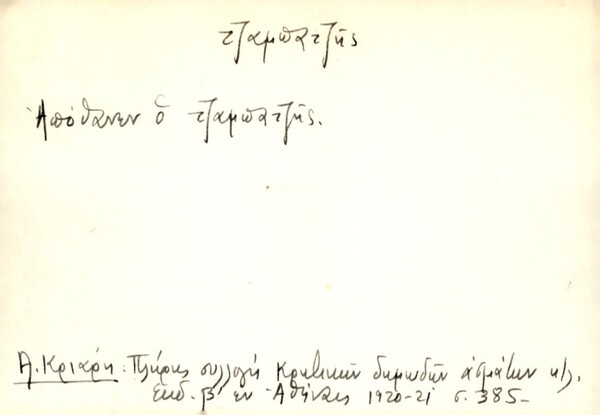 τζαμπατζῆς
Ἀπόθανεν ὁ τζαμπατζῆς.
Α. Κριάρη : Πλήρης συλλογή Κρητικῶν δημωδῶν ᾀσμάτων κτλ.
Ἐκδ. β' ἐν Ἀθήναις 1920-21 σ. 385-